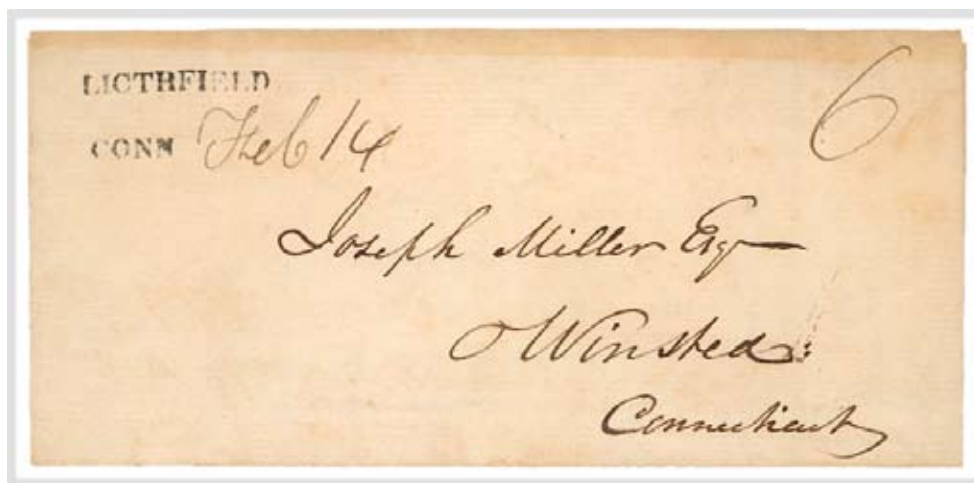 LICTHFIELD
CONN Feb 14
6
Joseph Miller Esq
Winsted
Connecticut